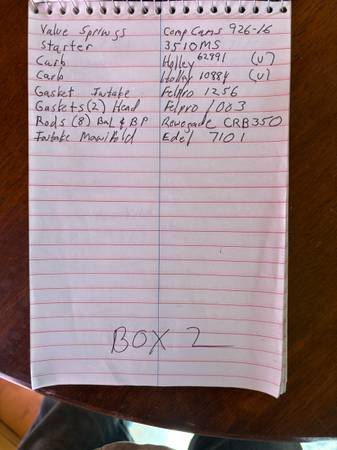 Valve Springs Comp Cams 926-16
Starter 3510MS
Carb Holley 62891 (U)
Carb Holley 10884 (U)
Gasket Intake Felpro 1256
Gaskets (2) Head Felpro 1003
Rods (8) BAL & BP Renegade CRB350
Intake Manifold Edel 7101
BOX 2